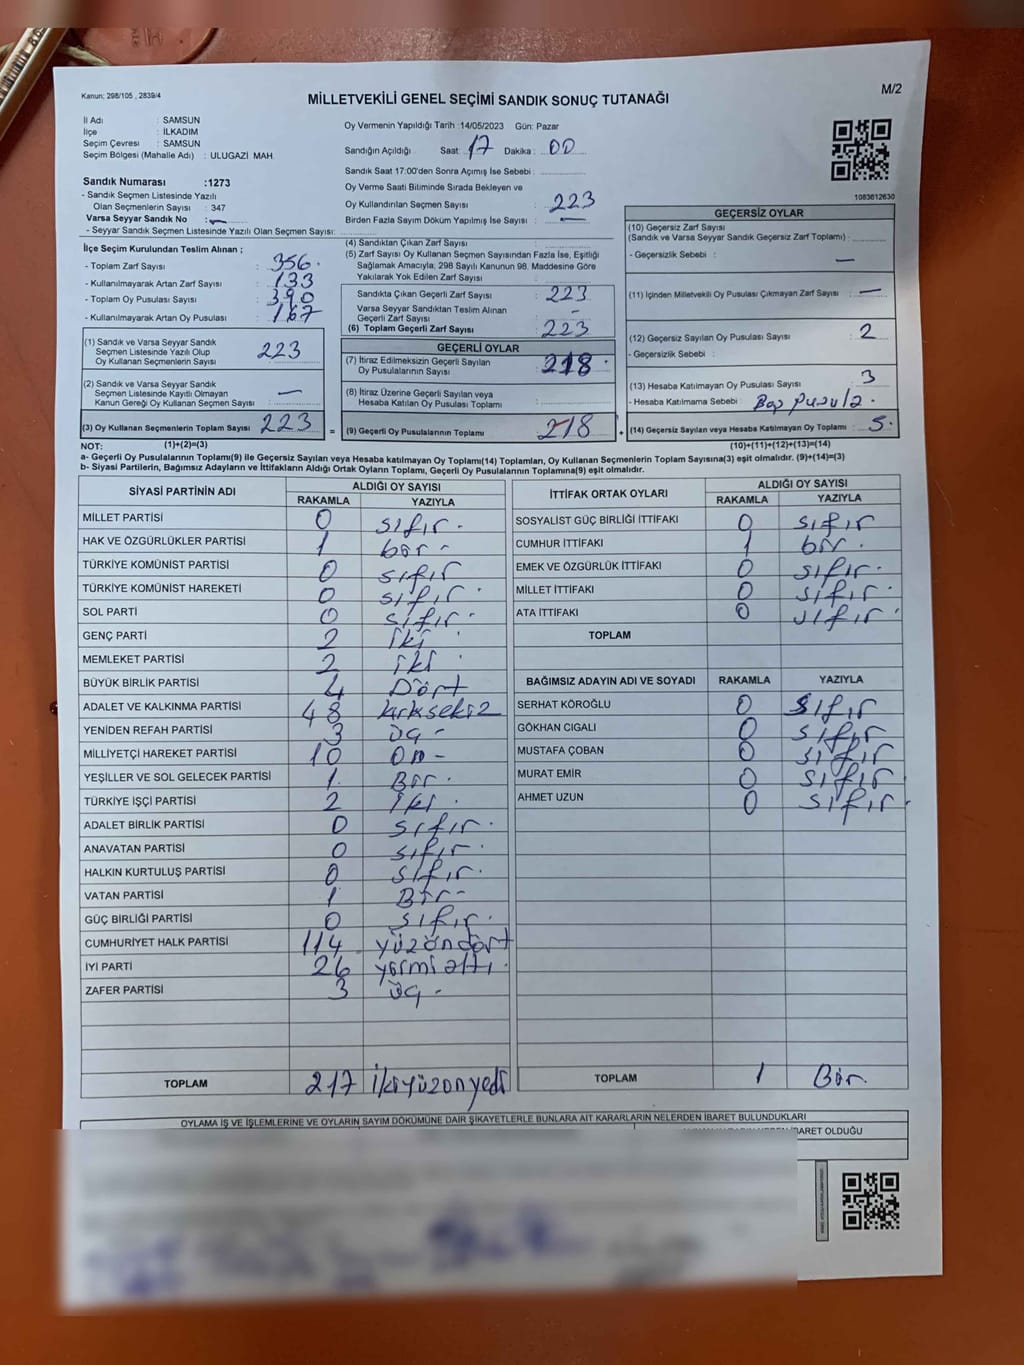 Kanun; 298/105 , 2839/4
M/2
MİLLETVEKİLİ GENEL SEÇİMİ SANDIK SONUÇ TUTANAĞI
İl Adı : SAMSUN
İlçe : İLKADIM
Seçim Çevresi : SAMSUN
Seçim Bölgesi (Mahalle Adı) : ULUGAZİ MAH
Sandık Numarası :1273
- Sandık Seçmen Listesinde Yazılı
Olan Seçmenlerin Sayısı : 347
Varsa Seyyar Sandık No : —
- Seyyar Sandık Seçmen Listesinde Yazılı Olan Seçmen Sayısı:
Oy Vermenin Yapıldığı Tarih :14/05/2023 Gün: Pazar
Sandığın Açıldığı Saat: 17 Dakika : 00
Sandık Saat 17:00'den Sonra Açımış İse Sebebi :
Oy Verme Saati Bitiminde Sırada Bekleyen ve
Oy Kullandırılan Seçmen Sayısı : 223
Birden Fazla Sayım Döküm Yapılmış İse Sayısı : —
1083612630
İlçe Seçim Kurulundan Teslim Alınan ;
- Toplam Zarf Sayısı : 356.
- Kullanılmayarak Artan Zarf Sayısı : 133
- Toplam Oy Pusulası Sayısı : 390
- Kullanılmayarak Artan Oy Pusulası : 167
(1) Sandık ve Varsa Seyyar Sandık
Seçmen Listesinde Yazılı Olup
Oy Kullanan Seçmenlerin Sayısı : 223
(2) Sandık ve Varsa Seyyar Sandık
Seçmen Listesinde Kayıtlı Olmayan
Kanun Gereği Oy Kullanan Seçmen Sayısı : —
(3) Oy Kullanan Seçmenlerin Toplam Sayısı : 223
(4) Sandıktan Çıkan Zarf Sayısı :
(5) Zarf Sayısı Oy Kullanan Seçmen Sayısından Fazla İse, Eşitliği
Sağlamak Amacıyla, 298 Sayılı Kanunun 98. Maddesine Göre
Yakılarak Yok Edilen Zarf Sayısı :
Sandıkta Çıkan Geçerli Zarf Sayısı : 223
Varsa Seyyar Sandıktan Teslim Alınan
Geçerli Zarf Sayısı : -
(6) Toplam Geçerli Zarf Sayısı : 223
GEÇERLİ OYLAR
(7) İtiraz Edilmeksizin Geçerli Sayılan
Oy Pusulalarının Sayısı : 218
(8) İtiraz Üzerine Geçerli Sayılan veya
Hesaba Katılan Oy Pusulası Toplamı :
= (9) Geçerli Oy Pusulalarının Toplamı : 218 +
GEÇERSİZ OYLAR
(10) Geçersiz Zarf Sayısı
(Sandık ve Varsa Seyyar Sandık Geçersiz Zarf Toplamı) :
- Geçersizlik Sebebi : —
(11) İçinden Milletvekili Oy Pusulası Çıkmayan Zarf Sayısı : —
(12) Geçersiz Sayılan Oy Pusulası Sayısı : 2
- Geçersizlik Sebebi :
(13) Hesaba Katılmayan Oy Pusulası Sayısı : 3
- Hesaba Katılmama Sebebi : Boş pusula.
(14) Geçersiz Sayılan veya Hesaba Katılmayan Oy Toplamı : 5.
NOT: (1)+(2)=(3) (10)+(11)+(12)+(13)=(14)
a- Geçerli Oy Pusulaları Toplamı(9) ile Geçersiz Sayılan veya Hesaba katılmayan Oy Toplamı(14) Toplamları, Oy Kullanan Seçmenlerin Toplam Sayısına(3) eşit olmalıdır. (9)+(14)=(3)
b- Siyasi Partilerin, Bağımsız Adayların ve İttifakların Aldığı Ortak Oyların Toplamı, Geçerli Oy Pusulalarının Toplamına(9) eşit olmalıdır.
SİYASİ PARTİNİN ADI ALDIĞI OY SAYISI
RAKAMLA YAZIYLA
MİLLET PARTİSİ 0 sıfır.
HAK VE ÖZGÜRLÜKLER PARTİSİ 1 bir -
TÜRKİYE KOMÜNİST PARTİSİ 0 sıfır
TÜRKİYE KOMÜNİST HAREKETİ 0 sıfır.
SOL PARTİ 0 sıfır.
GENÇ PARTİ 2 iki
MEMLEKET PARTİSİ 2 iki
BÜYÜK BİRLİK PARTİSİ 4 Dört
ADALET VE KALKINMA PARTİSİ 48 kırksekiz
YENİDEN REFAH PARTİSİ 3 üç -
MİLLİYETÇİ HAREKET PARTİSİ 10 On -
YEŞİLLER VE SOL GELECEK PARTİSİ 1. Bir.
TÜRKİYE İŞÇİ PARTİSİ 2 iki.
ADALET BİRLİK PARTİSİ 0 sıfır.
ANAVATAN PARTİSİ 0 sıfır.
HALKIN KURTULUŞ PARTİSİ 0 sıfır.
VATAN PARTİSİ 1 Bir -
GÜÇ BİRLİĞİ PARTİSİ 0 sıfır.
CUMHURİYET HALK PARTİSİ 114 yüzöndört
İYİ PARTİ 26 yirmi altı.
ZAFER PARTİSİ 3 üç -
TOPLAM 217 ikiyüzonyedi
İTTİFAK ORTAK OYLARI ALDIĞI OY SAYISI
RAKAMLA YAZIYLA
SOSYALİST GÜÇ BİRLİĞİ İTTİFAKI 0 sıfır
CUMHUR İTTİFAKI 1 bir.
EMEK VE ÖZGÜRLÜK İTTİFAKI 0 sıfır.
MİLLET İTTİFAKI 0 sıfır.
ATA İTTİFAKI 0 sıfır.
TOPLAM
BAĞIMSIZ ADAYIN ADI VE SOYADI RAKAMLA YAZIYLA
SERHAT KÖROĞLU 0 sıfır
GÖKHAN CIGALI 0 sıfır
MUSTAFA ÇOBAN 0 sıfır
MURAT EMİR 0 sıfır
AHMET UZUN 0 sıfır.
TOPLAM 1 Bir.
OYLAMA İŞ VE İŞLEMLERİNE VE OYLARIN SAYIM DÖKÜMÜNE DAİR ŞİKAYETLERLE BUNLARA AİT KARARLARIN NELERDEN İBARET BULUNDUKLARI
İBARET OLDUĞU